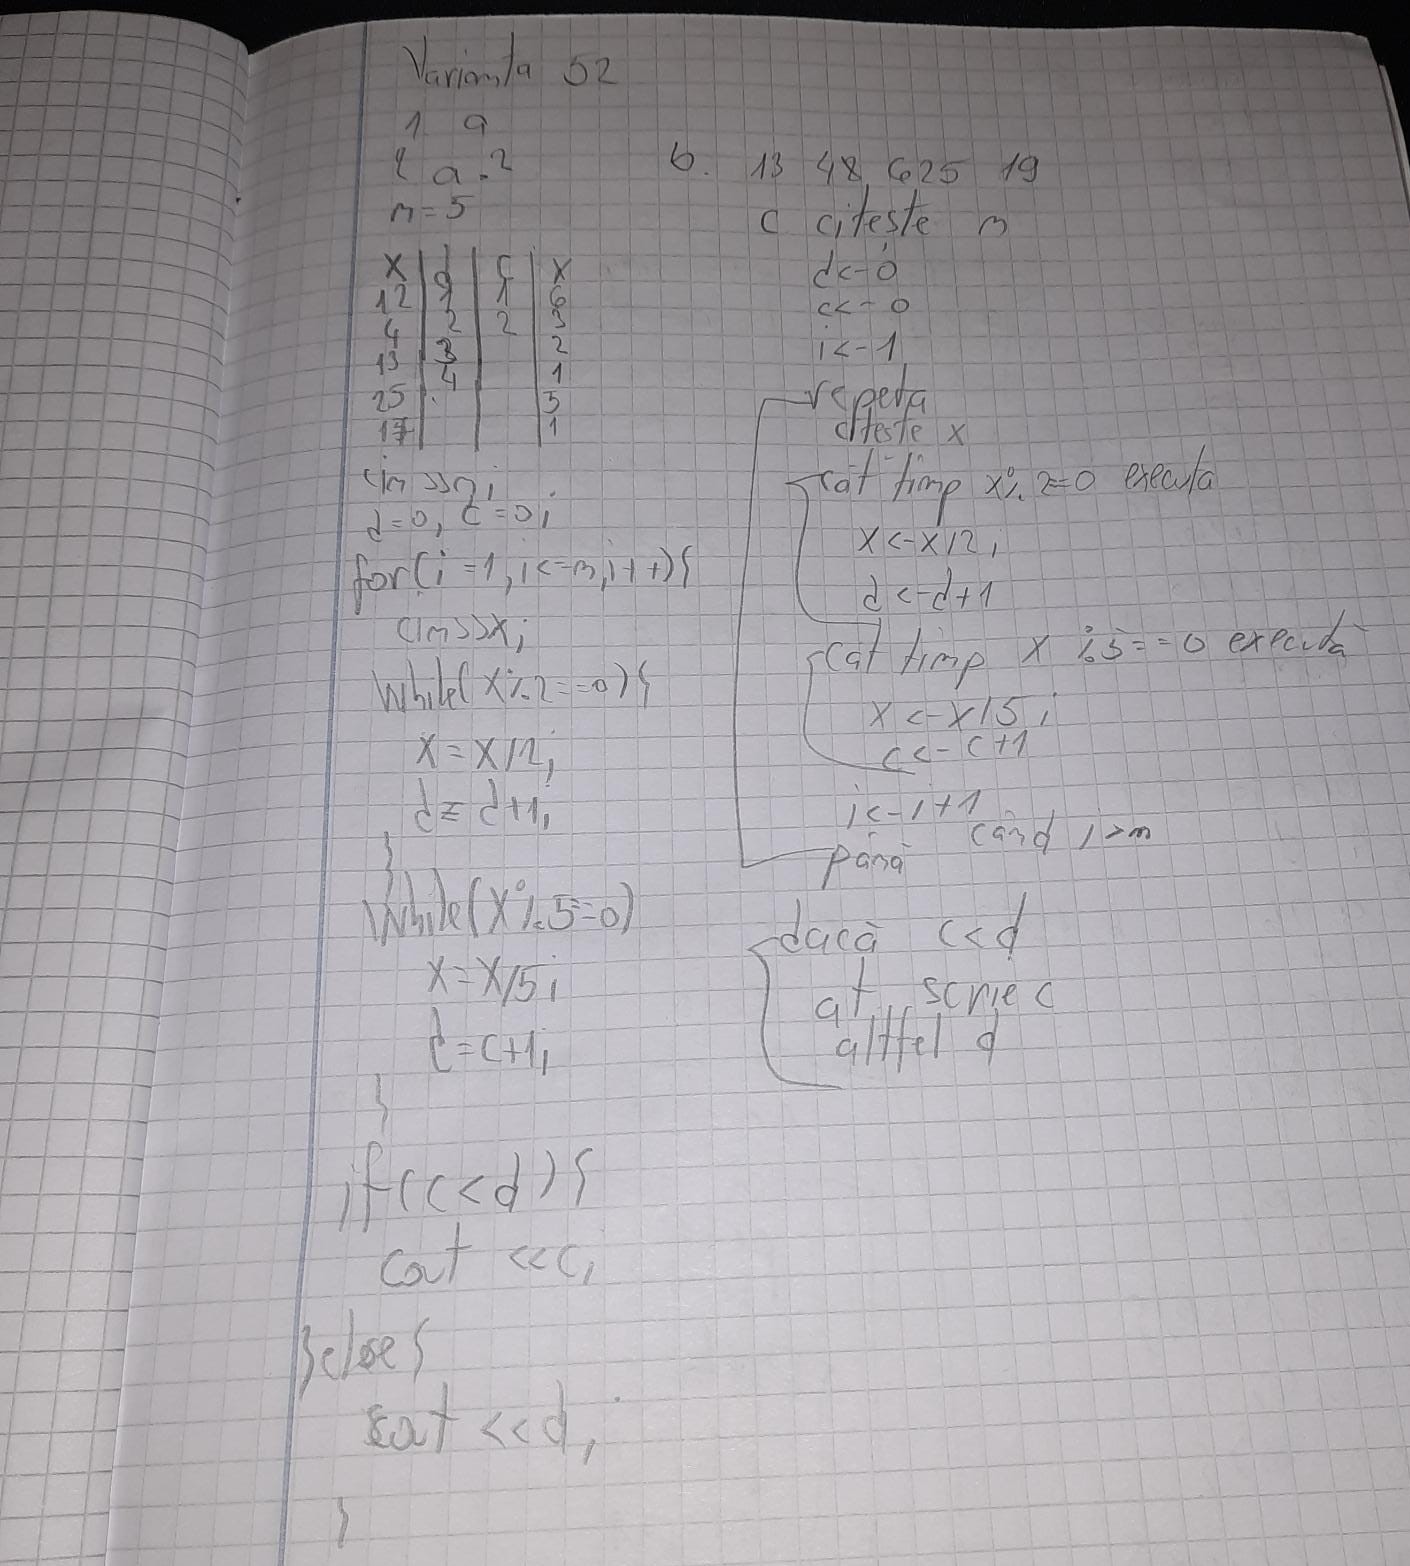 Varianta 52
1 a
a. 2
n=5
x d c x
12 1 1 6
4 2 2 3
13 3 2
4 1
25 5
17 1
cin>>n;
d=0, c=0;
for(i=1, i<=n, i++){
cin>>x;
while(x%2==0){
x=x/2;
d=d+1;
}
while(x%5=0)
x=x/5;
c=c+1;
}
if(c<d){
cout <<c;
}else{
cout <<d;
}
b. 13 48, 625 19
c citește n
d<-0
c<-0
i<-1
repetă
citește x
cat timp x%2=0 execută
x<-x/2;
d<-d+1
cat timp x%5==0 execută
x<-x/5;
c<-c+1
i<-i+1
până când i>n
dacă c<d
at. scrie c
altfel d